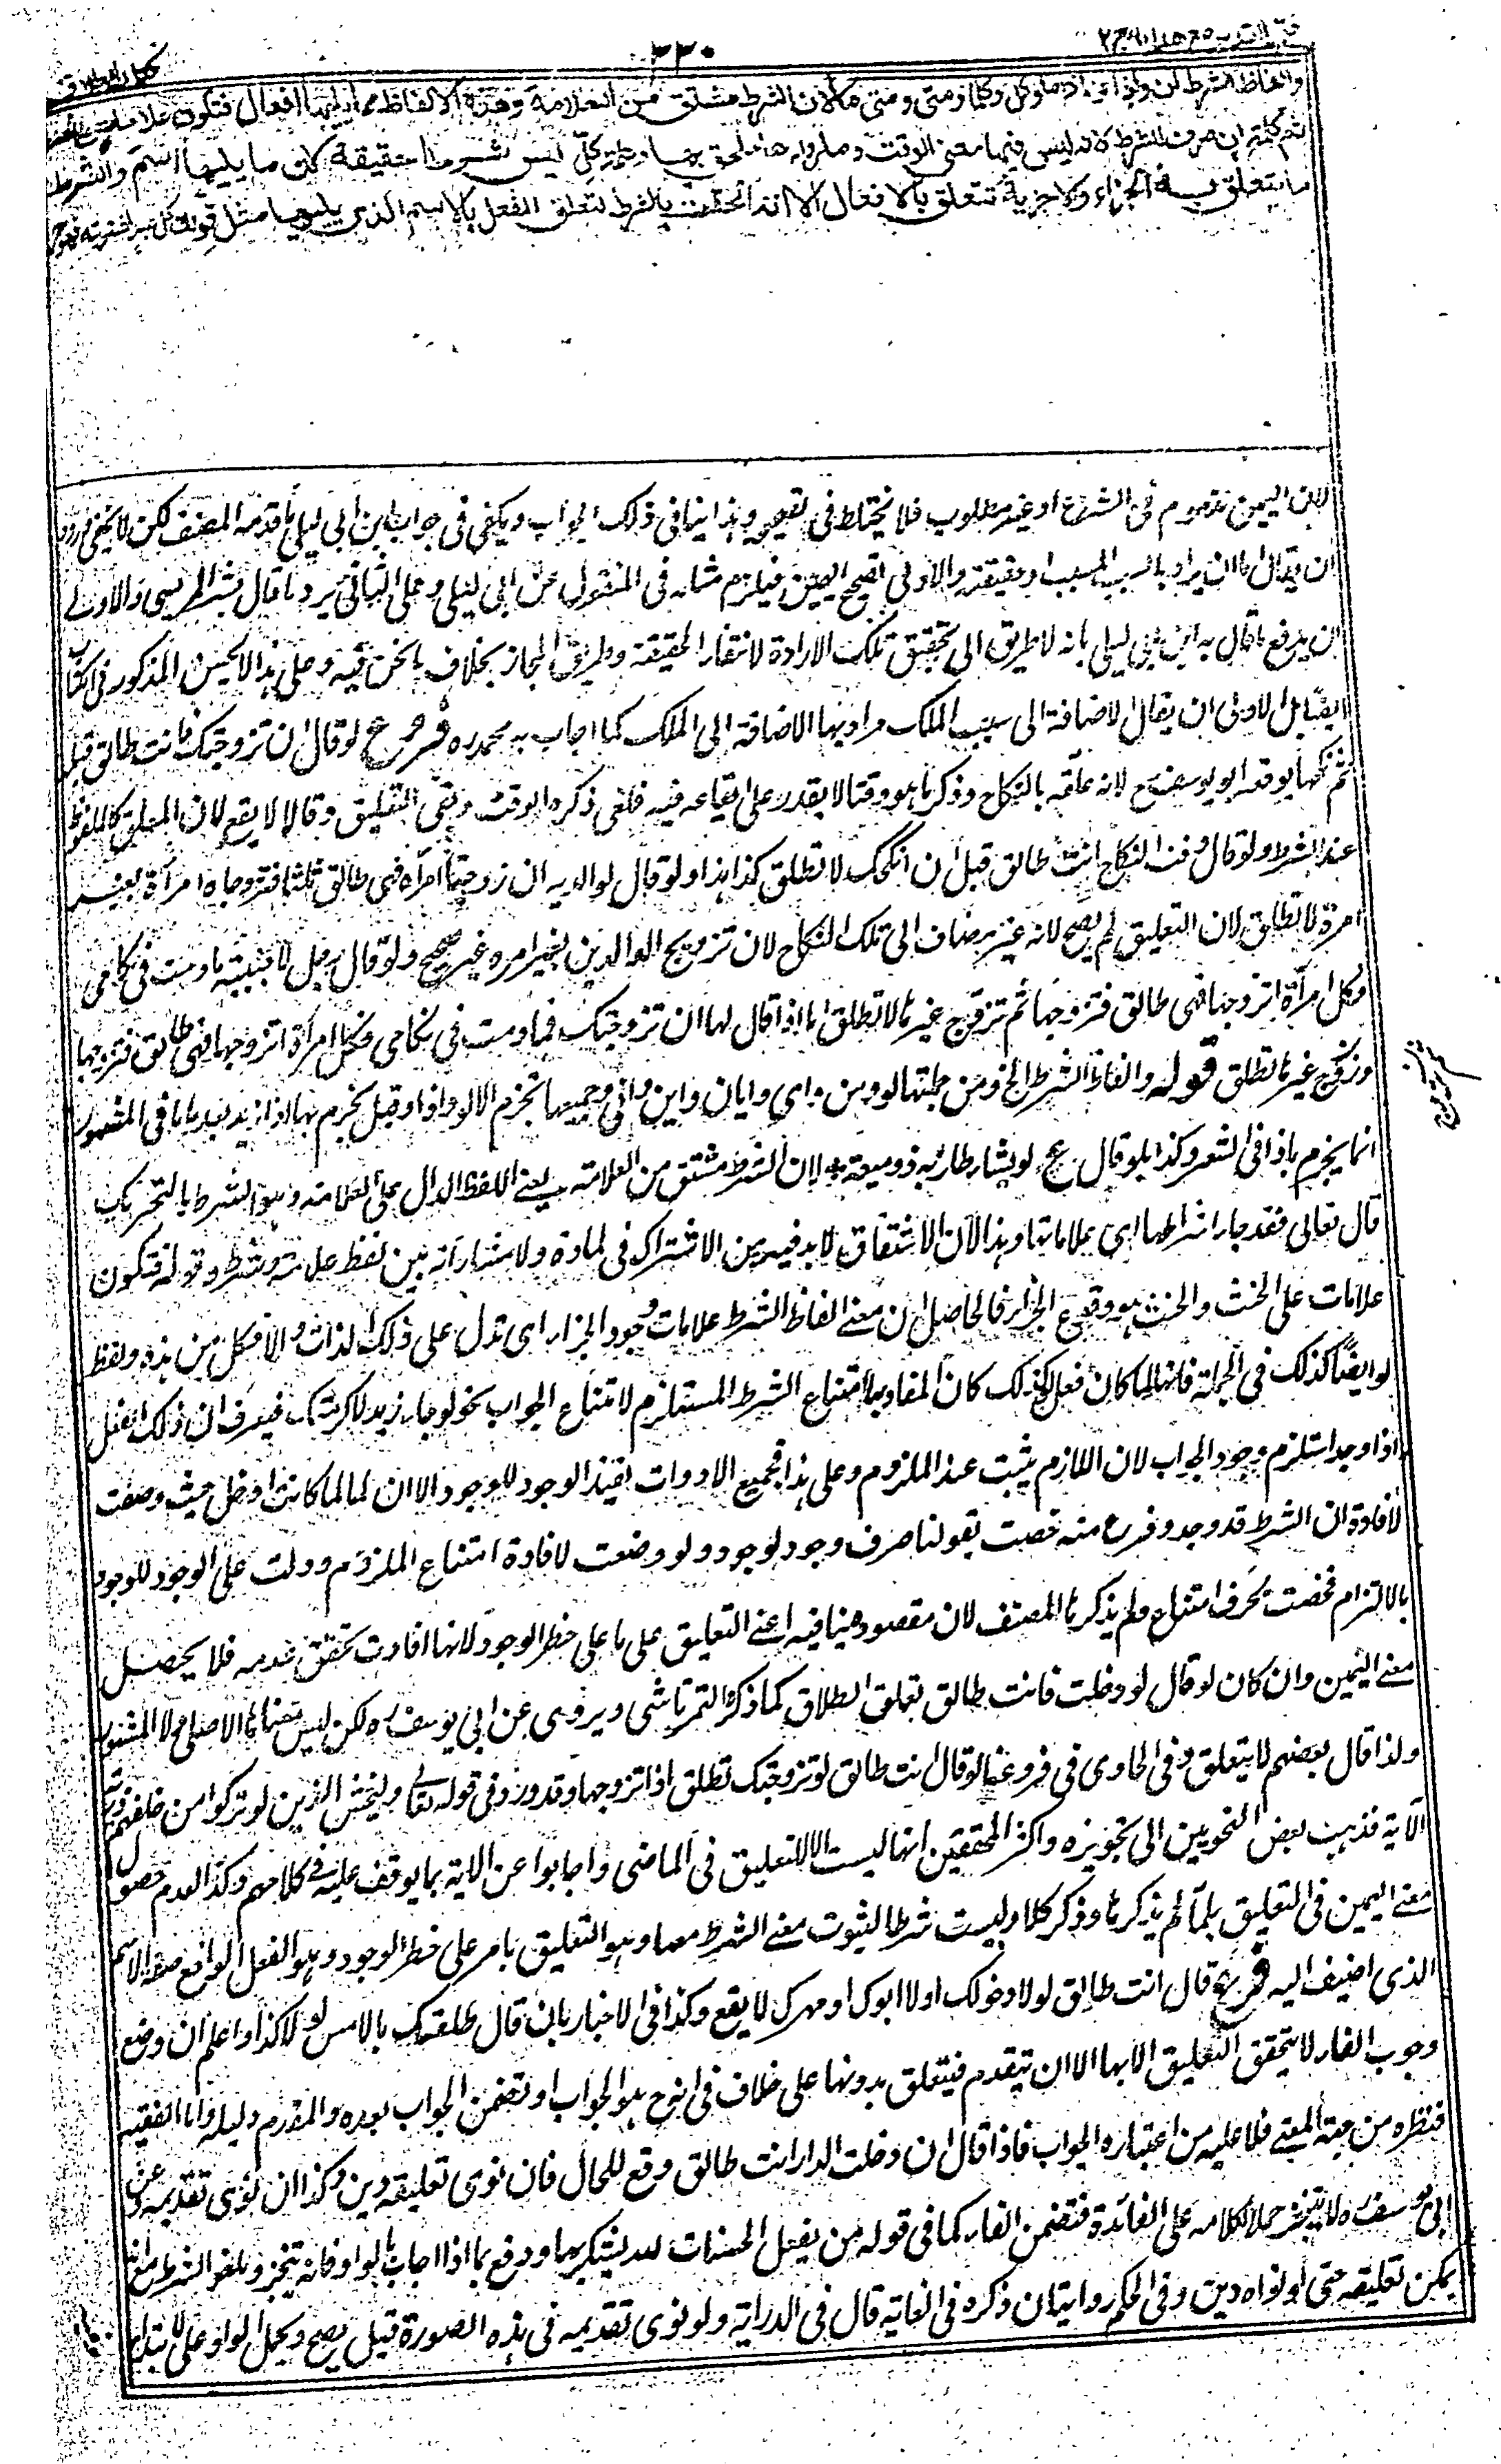 فتح القدير مع هداية ج ٢
٣٣٠
كتاب الطلاق
والفاظ الشرط ان واذا واذ ما وكل وكلما ومتى ومتى ما لان الشرط مشتق من العلامة وهذه الالفاظ مما يليها افعال فتكون علامات على الحنث
ثم كلمة ان حرف للشرط لانه ليس فيها معنى الوقت وما وراءها ملحق بها وكلمة كل ليس شرطا حقيقة لان ما يليها اسم والشرط
ما يتعلق به الجزاء والاجزية تتعلق بالافعال الا انه الحقت بالشرط لتعلق الفعل بالاسم الذي يليها مثل قولك كل عبد اشتريته فهو حر
لان اليمين مذموم فى الشرع او غير مطلوب فلا يحتاط فى تصحيحه وهذا ينافى ذلك الجواب ويكفى فى جواب ابن ابى ليلى ما قدمه المصنف لكن لا يخفى ورود
ان يقال اما ان يراد بالسبب المسبب او حقيقته والاول تصحح اليمين فيلزم مثله فى المنقول عن ابن ابى ليلى وعلى الثانى يرد ما قال بشر المريسى والاولى
ان يدفع ما قال به ابن ابى ليلى بانه لا طريق الى تحقيق تلك الارادة لانتفاء الحقيقة وطريق المجاز بخلاف ما نحن فيه وعلى هذا لا يحسن المذكور فى الكتاب
ايضا بل الاولى ان يقال الاضافة الى سبب الملك مراد بها الاضافة الى الملك كما اجاب به محمد ره فرع لو قال ان تزوجتك فانت طالق قبل
ثم نكحها يوقعه ابو يوسف رح لانه علقه بالنكاح وذكر ما هو وقتا لا يقدر على ايقاعه فيه فلغى ذكره الوقت وبقى التعليق وقالا لا يقع لان المعلق كالملفوظ
عند الشرط ولو قال وقت النكاح انت طالق قبل ان انكحك لا تطلق كذا هذا ولو قال لوالديه ان زوجتمانى امرأة فهى طالق ثلاثا فزوجاه امرأة بغير
امره لا تطلق لان التعليق لم يصح لانه غير مضاف الى ملك النكاح لان تزويج الوالدين بغير امره غير صحيح ولو قال رجل لاجنبية ما دمت فى نكاحى
فكل امرأة اتزوجها فهى طالق فتزوجها ثم تزوج غيرها لا تطلق اما اذا قال لها ان تزوجتك فما دمت فى نكاحى فكل امرأة اتزوجها فهى طالق فتزوجها
وتزوج غيرها تطلق قوله والفاظ الشرط الخ ومن جملتها لو ومن واى وايان واين وانى وجميعها تجزم الا لو واذا وقيل يجزم بها اذا زيد بعدها ما فى المشهور
انما يجزم باذا فى الشعر وكذا بلو قال ع لو يشا طار به ذو ميعة به لان الشرط مشتق من العلامة يعنى اللفظ الدال على العلامة وهو الشرط بالتحريك
قال تعالى فقد جاء اشراطها اى علاماتها وهذا لان الاشتقاق لا بد فيه من الاشتراك فى المادة ولا اشتراك بين لفظ علامة وشرط وقوله فتكون
علامات على الحنث والحنث هو وقوع الجزاء فالحاصل ان معنى الفاظ الشرط علامات وجود الجزاء اى تدل على ذلك لذات والا فكل من هذه ولفظ
لو ايضا كذلك فى الجملة فانها لما كان فعل كذلك كان المفاد بها امتناع الشرط المستلزم لامتناع الجواب نحو لو جاء زيد لاكرمتك فيعرف ان ذلك الفعل
اذا وجد استلزم وجود الجواب لان اللازم يثبت عند الملزوم وعلى هذا فجميع الادوات تفيد الوجود للوجود الا ان لما لما كانت داخل حيث وضعت
لافادة ان الشرط قد وجد وفرغ منه خصت بقولنا حرف وجود لوجود ولو وضعت لافادة امتناع الملزوم ودلت على الوجود للوجود
بالالتزام فخصت بحرف امتناع ولم يذكرها المصنف لان مقصوده ينافيه اعنى التعليق على ما على خطر الوجود لانها افادت تحقق عدمه فلا يحصل
معنى اليمين وان كان لو قال لو دخلت فانت طالق تعلق الطلاق كما ذكره التمرتاشى ويروى عن ابى يوسف ره لكن ليس معناها الاصلى ولا المشهور
ولذا قال بعضهم لا يتعلق وفى الحاوى فى فروعنا لو قال انت طالق لو تزوجتك تطلق اذا تزوجها وقد ورد فى قوله تعالى وليخش الذين لو تركوا من خلفهم ذرية
الآية فذهب بعض النحويين الى تجويزه واكثر المحققين انها ليست الا للتعليق فى الماضى واجابوا عن الاية بما يوقف عليه فى كلامهم وكذا لعدم حصول
معنى اليمين فى التعليق بلما لم يذكرها وذكر كلا وليست شرطا لثبوت معنى الشرط معها وهو التعليق بامر على خطر الوجود وهو الفعل الواقع صفة الاسم
الذى اضيف اليه فرع قال انت طالق لولا دخولك او لولا ابوك او مهرك لا يقع وكذا فى الاخبار بان قال طلقتك بالامس لولا كذا واعلم ان وضع
وجوب الفاء لا يتحقق التعليق الا بها الا ان يتقدم فيتعلق بدونها على خلاف فى انه ح هو الجواب او تضمن الجواب بعده والمقدم دليله واما الفقيه
فنظره من جهة المعنى فلا عليه من اعتباره الجواب فاذا قال ان دخلت الدار انت طالق وقع للحال فان نوى تعليقه دين وكذا ان نوى تقديمه وعن
ابى يوسف ره لا يتنجز حملا لكلامه على الفائدة فتضمن الفاء كما فى قوله من يفعل الحسنات لله يشكرها ودفع بما اذا اجاب بالواو فانه يتنجز ويلغو الشرط مع انه
يمكن تعليقه حتى لو نواه دين وفى الحكم روايتان ذكره فى الغاية قال فى الدراية ولو نوى تقديمه فى هذه الصورة قيل يصح ويحمل الواو على الابتداء